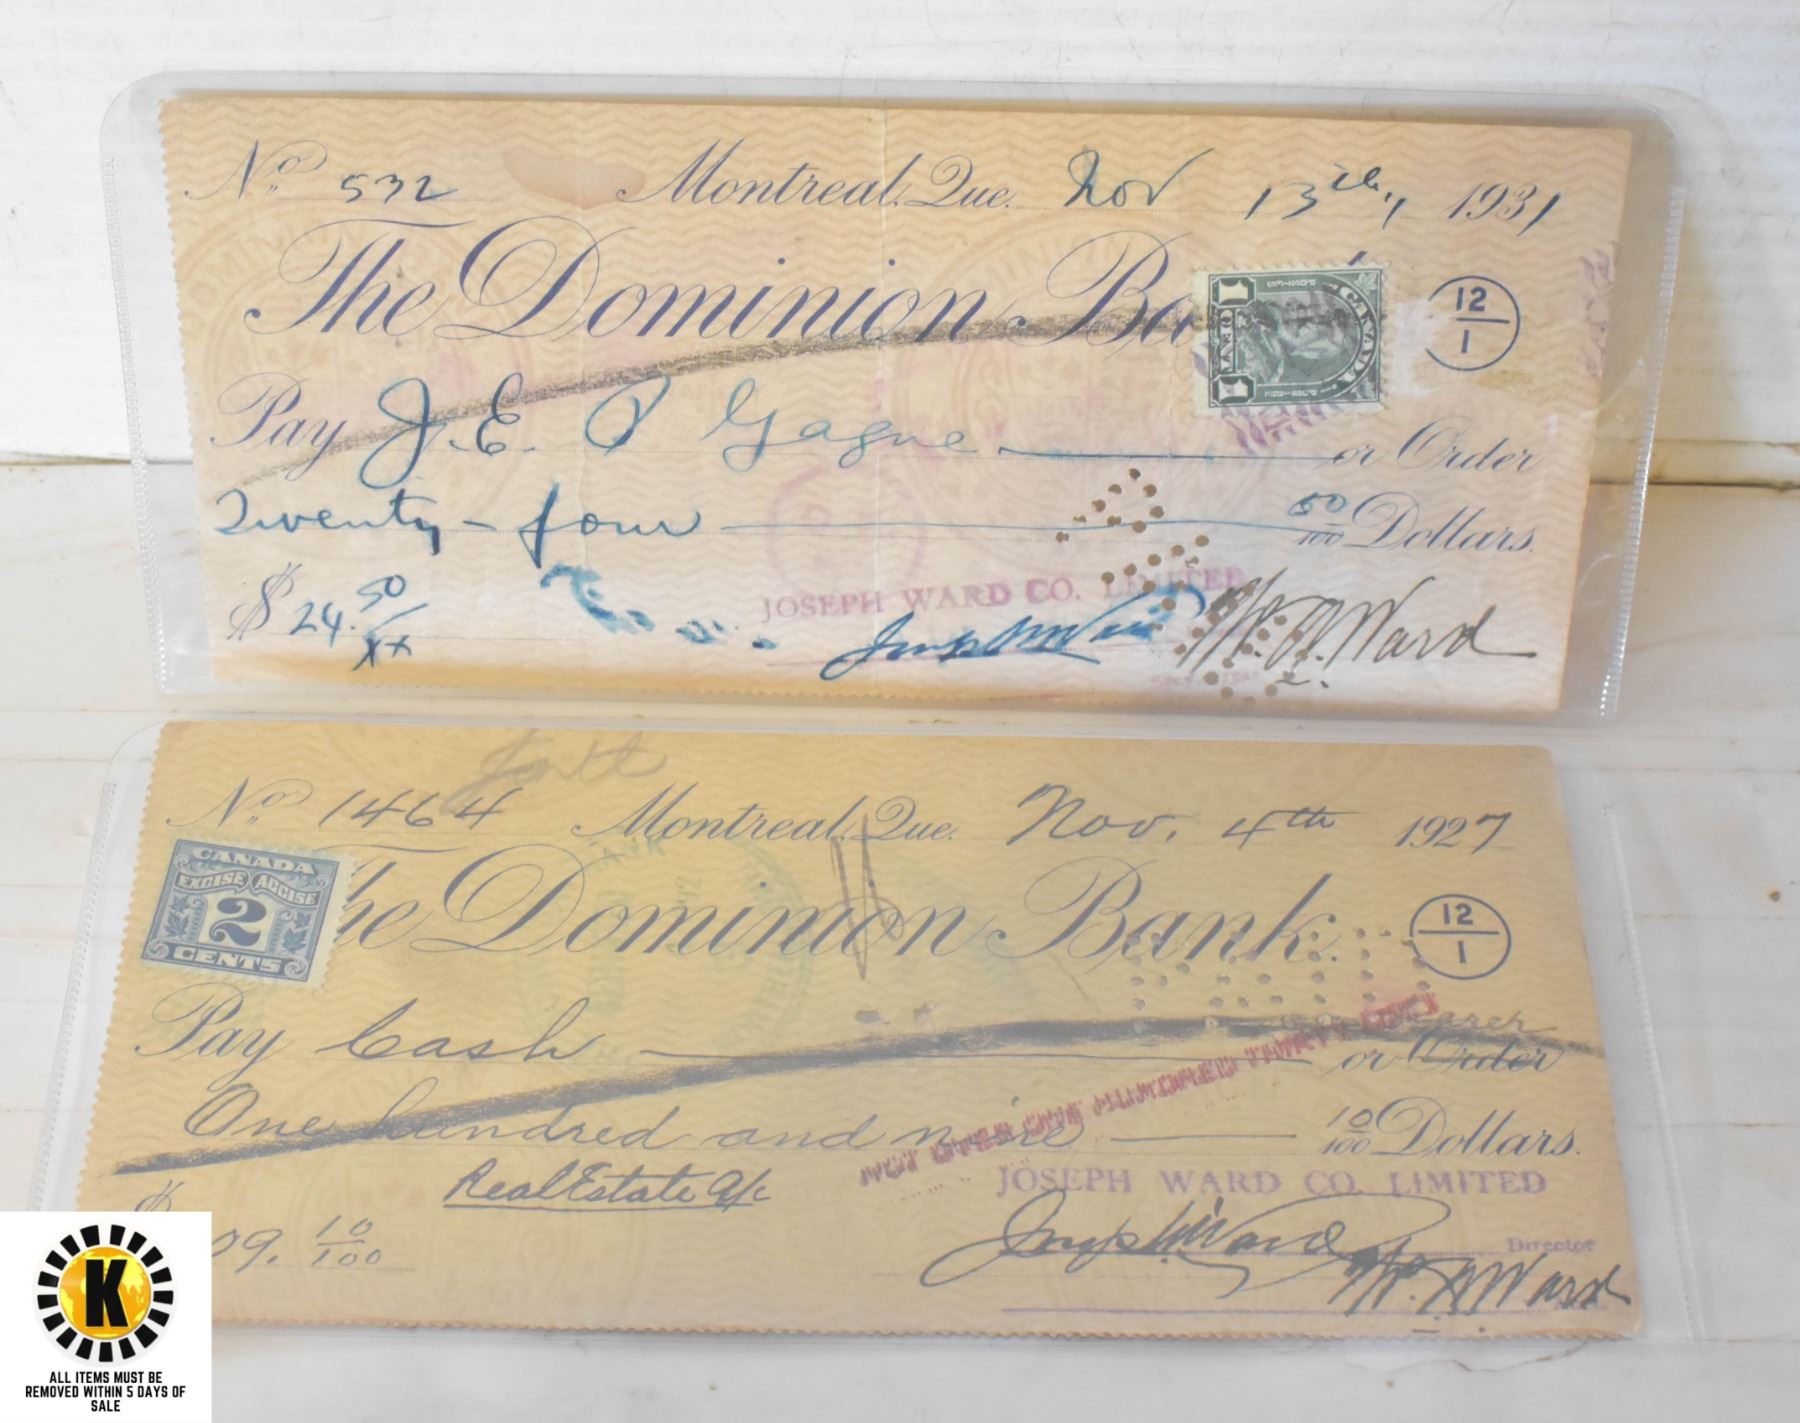 No. 532 Montreal, Que. Nov 13th, 1931
The Dominion Ba
12
1
1 1
Pay J.E. Gagne or Order
Twenty-four 50/100 Dollars.
JOSEPH WARD CO. LIMITED
$ 24. 50/xx
W. A. Ward
No. 1464 Montreal, Que. Nov. 4th 1927
CANADA
EXCISE ACCISE
2
CENTS
he Dominion Bank.
12
1
Pay Cash or Order
One hundred and nine 10/100 Dollars.
Real Estate a/c
JOSEPH WARD CO. LIMITED
$ 09. 10/100
Joseph Ward
Director
W. A. Ward
K
ALL ITEMS MUST BE
REMOVED WITHIN 5 DAYS OF
SALE